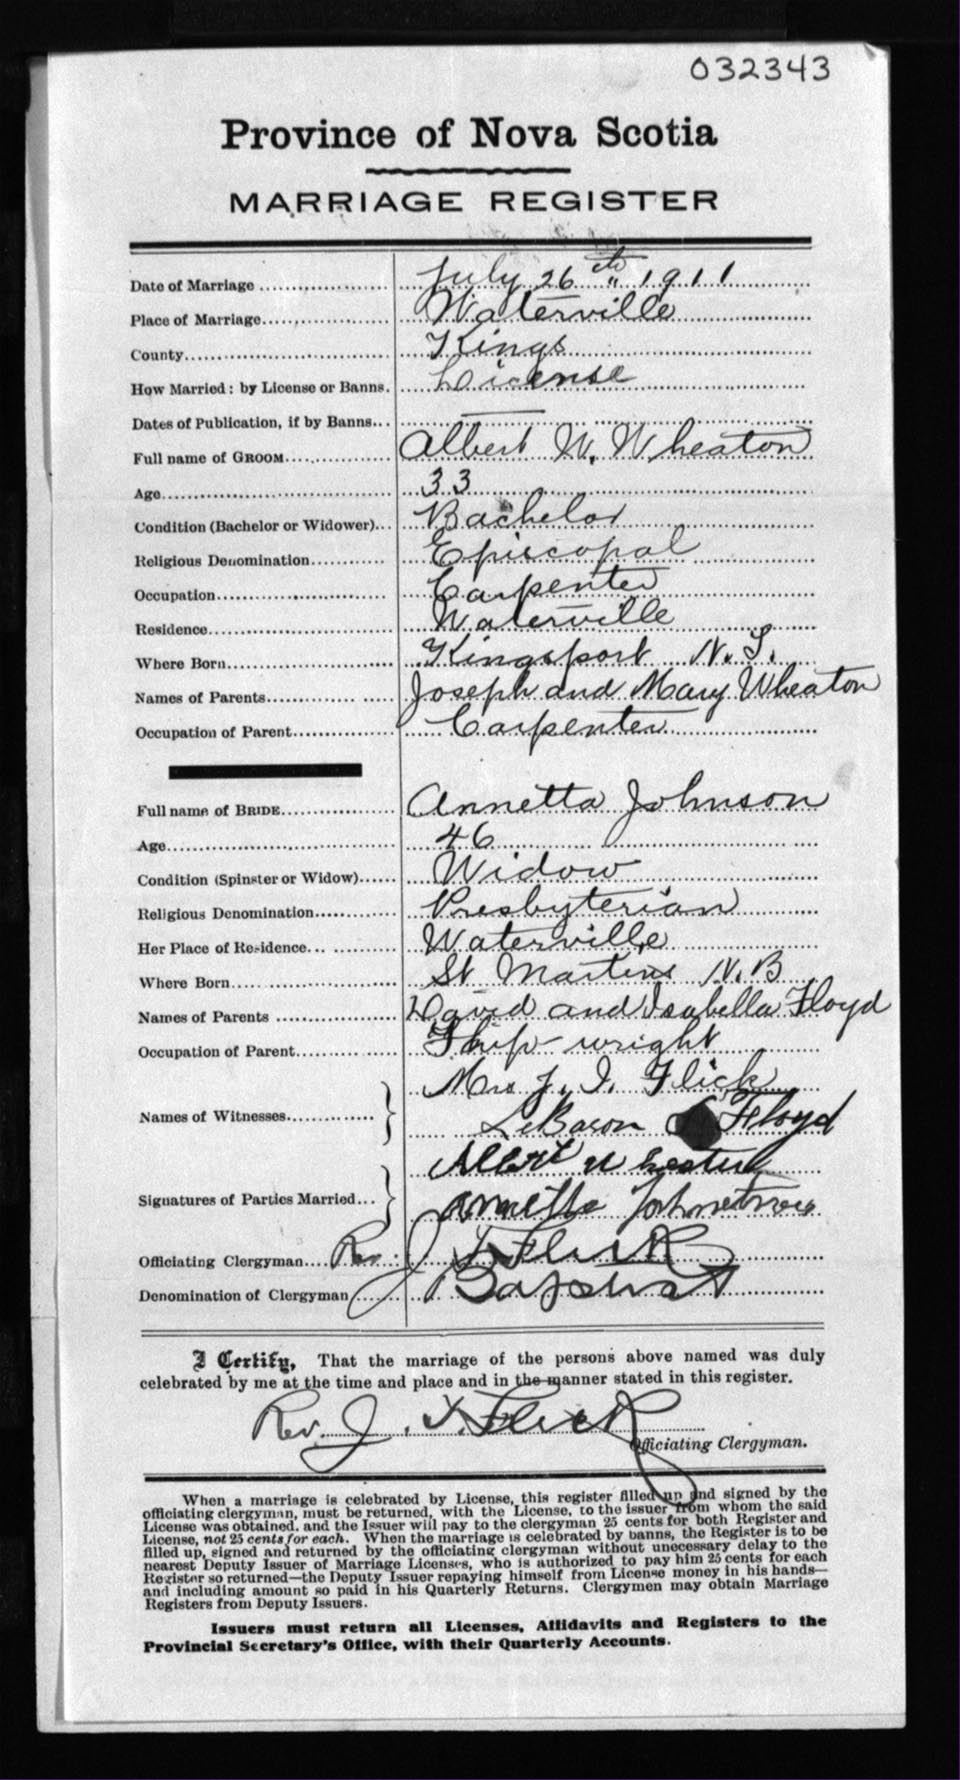 032343
Province of Nova Scotia
MARRIAGE REGISTER
Date of Marriage July 26th 1911
Place of Marriage Waterville
County Kings
How Married: by License or Banns. License
Dates of Publication, if by Banns
Full name of GROOM Albert W. Wheaton
Age 33
Condition (Bachelor or Widower) Bachelor
Religious Denomination Episcopal
Occupation Carpenter
Residence Waterville
Where Born Kingsport N.S.
Names of Parents Joseph and Mary Wheaton
Occupation of Parent Carpenter
Full name of BRIDE Annetta Johnson
Age 46
Condition (Spinster or Widow) Widow
Religious Denomination Presbyterian
Her Place of Residence Waterville
Where Born St Martins N.B
Names of Parents David and Isabella Floyd
Occupation of Parent Ship-wright
Mrs J. I. Flick
Names of Witnesses LeBaron Floyd
Albert Wheaton
Signatures of Parties Married Annetta
Officiating Clergyman Rev. J Flick
Denomination of Clergyman Baptist
I Certify, That the marriage of the persons above named was duly
celebrated by me at the time and place and in the manner stated in this register.
Rev. J. Flick
Officiating Clergyman.
When a marriage is celebrated by License, this register filled up and signed by the
officiating clergyman, must be returned, with the License, to the issuer from whom the said
License was obtained, and the Issuer will pay to the clergyman 25 cents for both Register and
License, not 25 cents for each. When the marriage is celebrated by banns, the Register is to be
filled up, signed and returned by the officiating clergyman without unecessary delay to the
nearest Deputy Issuer of Marriage Licenses, who is authorized to pay him 25 cents for each
Register so returned—the Deputy Issuer repaying himself from License money in his hands—
and including amount so paid in his Quarterly Returns. Clergymen may obtain Marriage
Registers from Deputy Issuers.
Issuers must return all Licenses, Affidavits and Registers to the
Provincial Secretary's Office, with their Quarterly Accounts.